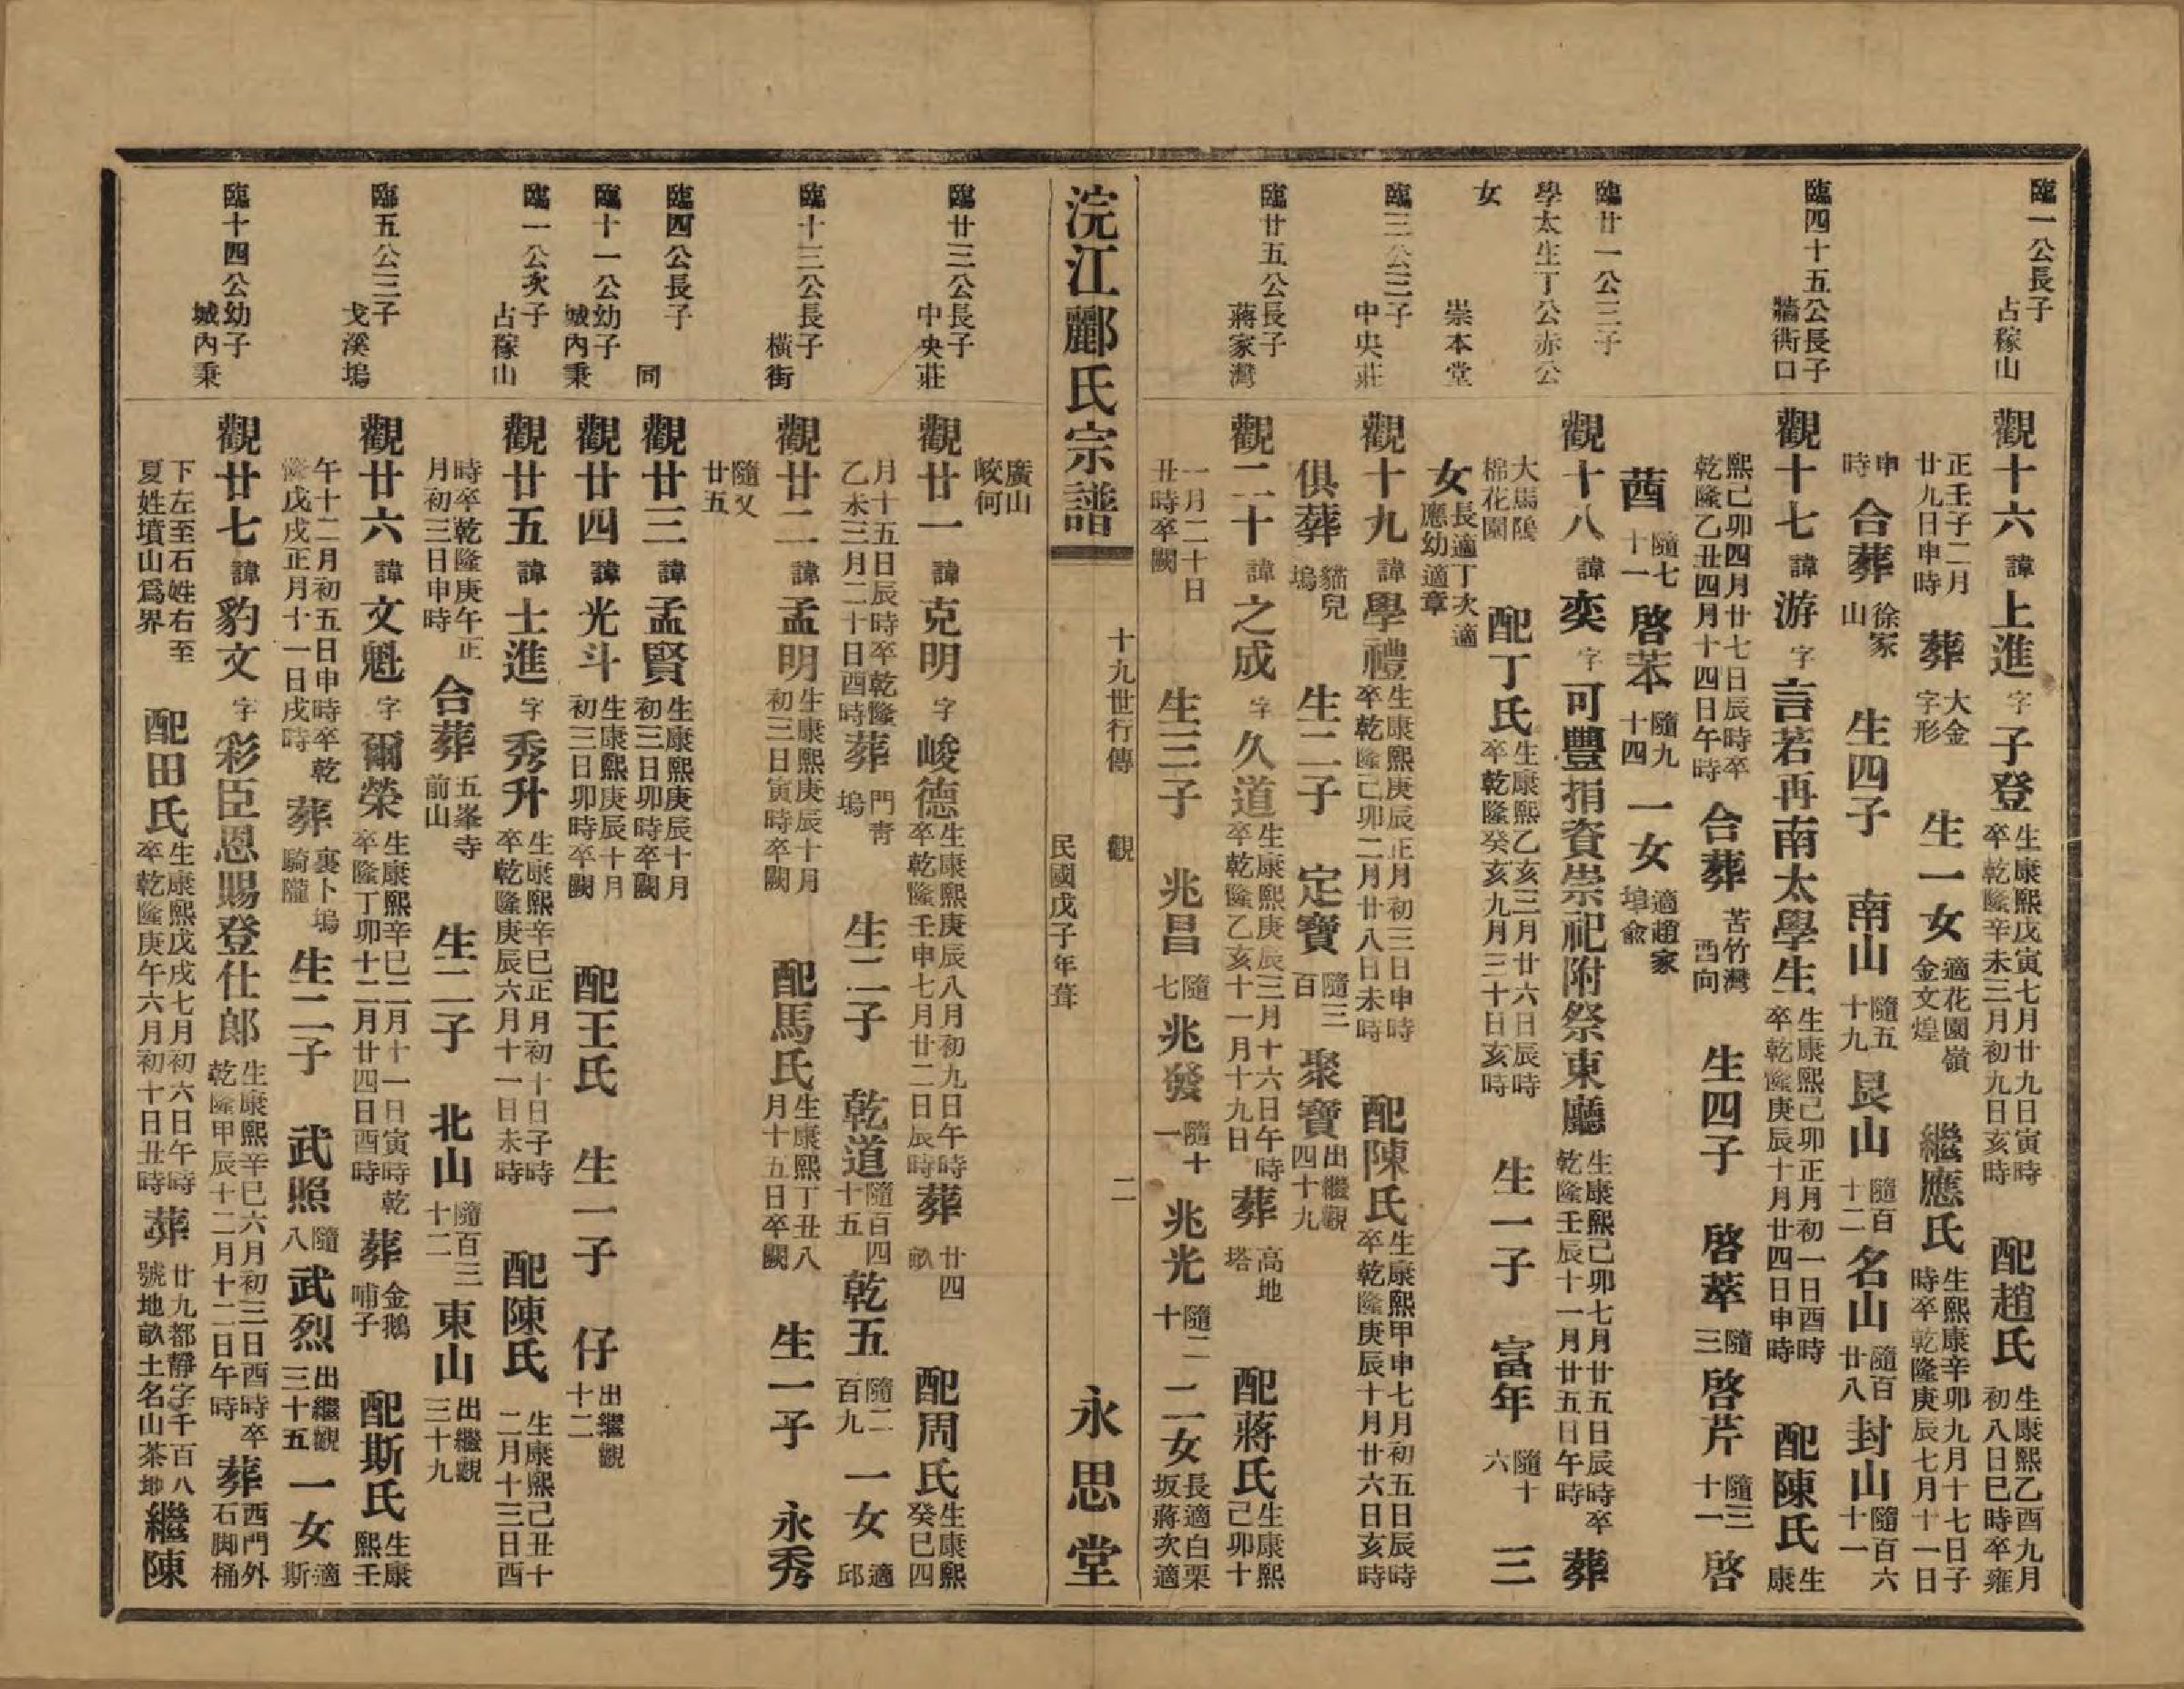 臨一公長子 占稼山
觀十六 諱 上進 字 子登 生康熙戊寅七月廿九日寅時 卒乾隆辛未三月初九日亥時 配趙氏 生康熙乙酉九月 初八日巳時卒雍
正壬子二月 廿九日申時 葬 大金 字形 生一女 適花園嶺 金文煌 繼應氏 生熙康辛卯九月十七日子 時卒乾隆庚辰七月十一日
申 時 合葬 徐家 山 生四子 南山 隨五 十九 艮山 隨百 十二 名山 隨百 廿八 封山 隨百六 十一
臨四十五公長子 牆衖口
觀十七 諱 游 字 言若再南太學生 生康熙己卯正月初一日酉時 卒乾隆庚辰十月廿四日申時 配陳氏 生 康
熙己卯四月廿七日辰時卒 乾隆乙丑四月十四日午時 合葬 苦竹灣 酉向 生四子 啓萃 隨 三 啓芹 隨三 十一 啓
茜 隨七 十一 啓苯 隨九 十四 一女 適趙家 埠俞
臨廿一公三子
觀十八 諱 奕 字 可豐捐資崇祀附祭東廳 生康熙己卯七月廿五日辰時卒 乾隆壬辰十一月廿五日午時 葬
學太生丁公赤公
大馬隖 棉花園 配丁氏 生康熙乙亥三月廿六日辰時 卒乾隆癸亥九月三十日亥時 生一子 富年 隨十 六 三
女 崇本堂
女 長適丁次適 應幼適章
臨三公三子 中央莊
觀十九 諱 學禮 生康熙庚辰正月初三日申時 卒乾隆己卯二月廿八日未時 配陳氏 生康熙甲申七月初五日辰時 卒乾隆庚辰十月廿六日亥時
俱葬 貓兒 塢 生二子 定寶 隨三 百 聚寶 出繼觀 四十九
臨廿五公長子 蔣家灣
觀二十 諱 之成 字 久道 生康熙庚辰三月十六日午時 卒乾隆乙亥十一月十九日 葬 高地 塔 配蔣氏 生康熙 己卯十
一月二十日 丑時卒闕 生三子 兆昌 隨 七 兆發 隨十 一 兆光 隨二 十 二女 長適白栗 坂蔣次適
浣江酈氏宗譜 十九世行傳 觀 民國戊子年葺 二 永思堂
廣山 峧何
臨廿三公長子 中央莊
觀廿一 諱 克明 字 峻德 生康熙庚辰八月初九日午時 卒乾隆壬申七月廿二日辰時 葬 廿四 畝 配周氏 生康熙 癸巳四
月十五日辰時卒乾隆 乙未三月二十日酉時 葬 門靑 塢 生二子 乾道 隨百四 十五 乾五 隨二 百九 一女 適 邱
臨十三公長子 橫街
觀廿二 諱 孟明 生康熙庚辰十月 初三日寅時卒闕 配馬氏 生康熙丁丑八 月十五日卒闕 生一子 永秀
隨又 廿五
臨四公長子 同
觀廿三 諱 孟賢 生康熙庚辰十月 初三日卯時卒闕
臨十一公幼子 城內秉
觀廿四 諱 光斗 生康熙庚辰十月 初三日卯時卒闕 配王氏 生一子 仔 出繼觀 十二
臨一公次子 占稼山
觀廿五 諱 士進 字 秀升 生康熙辛巳正月初十日子時 卒乾隆庚辰六月十一日未時 配陳氏 生康熙己丑十 二月十三日酉
時卒乾隆庚午正 月初三日申時 合葬 五峯寺 前山 生二子 北山 隨百三 十二 東山 出繼觀 三十九
臨五公三子 戈溪塢
觀廿六 諱 文魁 字 爾榮 生康熙辛巳二月十一日寅時乾 卒隆丁卯十二月廿四日酉時 葬 金鵝 哺子 配斯氏 生康 熙壬
午十二月初五日申時卒乾 隆戊戌正月十一日戌時 葬 裏卜塢 騎隴 生二子 武照 隨 八 武烈 出繼觀 三十五 一女 適 斯
臨十四公幼子 城內秉
觀廿七 諱 豹文 字 彩臣恩賜登仕郎 生康熙辛巳六月初三日酉時卒 乾隆甲辰十二月十二日午時 葬 西門外 石脚桶
下左至石姓右至 夏姓墳山爲界 配田氏 生康熙戊戌七月初六日午時 卒乾隆庚午六月初十日丑時 葬 廿九都靜字千百八 號地畝土名山茶塢 繼陳